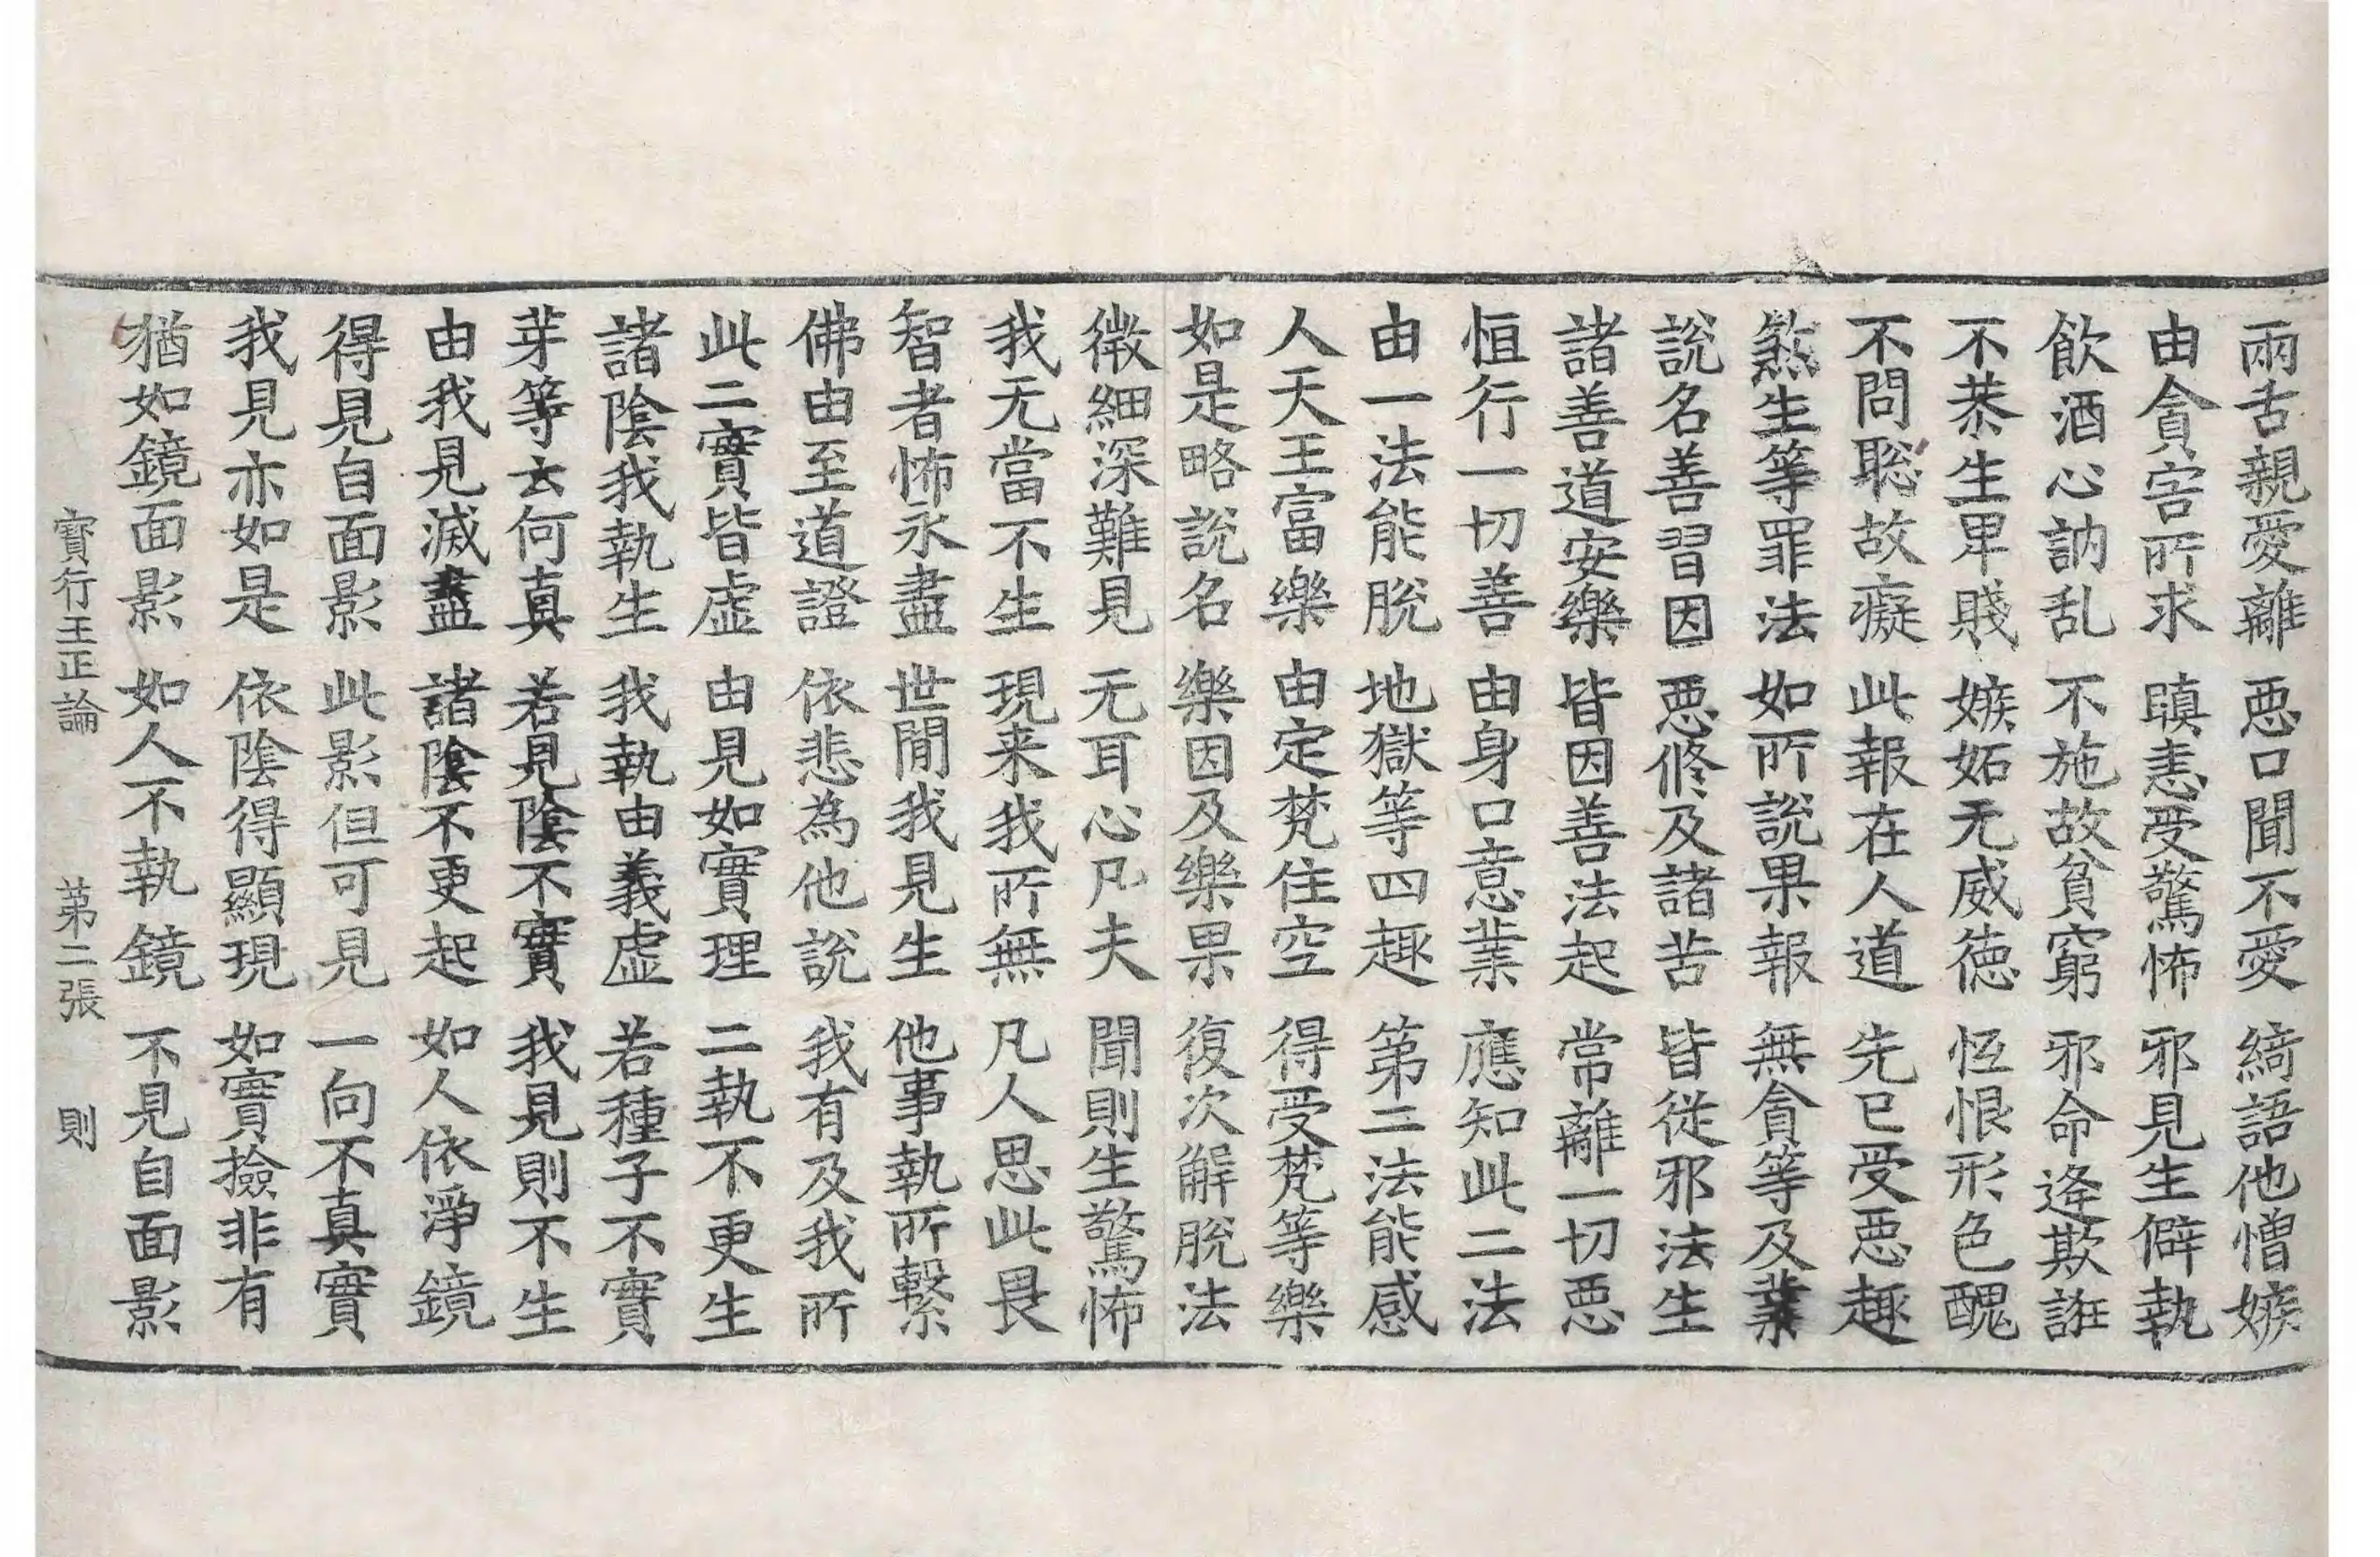 兩舌親愛離 惡口聞不愛 綺語他憎嫉
由貪害所求 瞋恚受驚怖 邪見生僻執
飲酒心訥乱 不施故貧窮 邪命逢欺誑
不恭生卑賤 嫉妬无威徳 恆恨形色醜
不問聡故癡 此報在人道 先已受惡趣
煞生等罪法 如所說果報 無貪等及業
說名善習因 惡修及諸苦 皆從邪法生
諸善道安樂 皆因善法起 常離一切惡
恒行一切善 由身口意業 應知此二法
由一法能脫 地獄等四趣 第二法能感
人天王富樂 由定梵住空 得受梵等樂
如是略說名 樂因及樂果 復次解脫法
微細深難見 无耳心凡夫 聞則生驚怖
我无當不生 現来我所無 凡人思此畏
智者怖永盡 世間我見生 他事執所繫
佛由至道證 依悲為他說 我有及我所
此二實皆虛 由見如實理 二執不更生
諸陰我執生 我執由義虛 若種子不實
芽等云何真 若見陰不實 我見則不生
由我見滅盡 諸陰不更起 如人依淨鏡
得見自面影 此影但可見 一向不真實
我見亦如是 依陰得顯現 如實撿非有
猶如鏡面影 如人不執鏡 不見自面影
寳行王正論 第二張 則